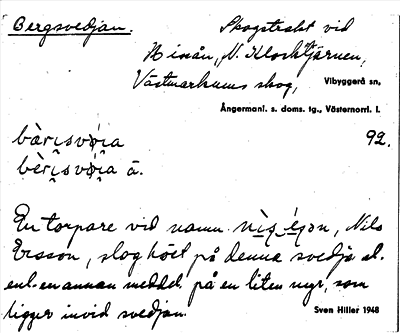 Bergsvedjan.
Skogstrakt vid
Binån, N. Klocktjärnen,
Västmarkums skog, Vibyggerå sn,
Ångermanl. s. doms. tg., Västernorrl. l.
92.
ä.
En torpare vid namn, Nils
Ersson, slog höet på denna svedja el.
enl. en annan meddel. på en liten myr, som
ligger invid svedjan.
Sven Hiller 1948